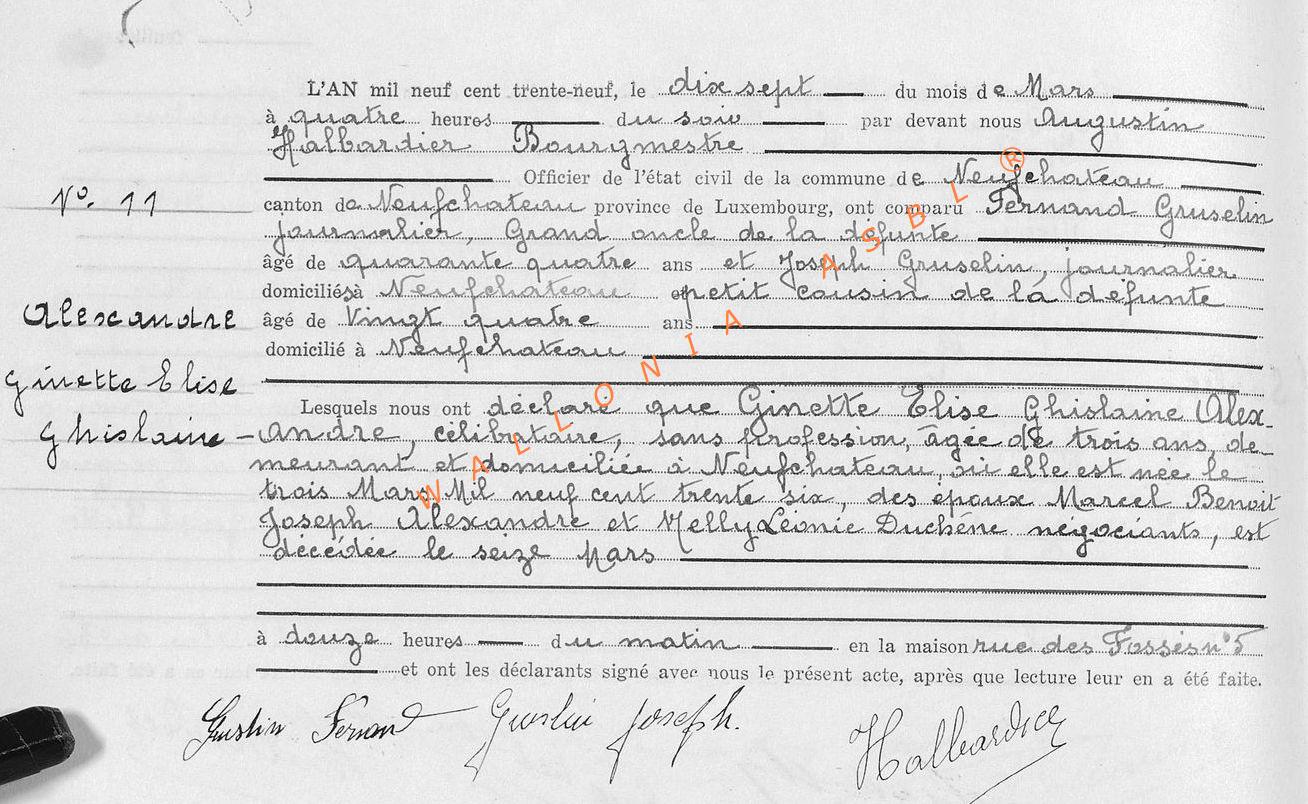 L'AN mil neuf cent trente-neuf, le dix sept du mois de Mars
à quatre heures du soir par devant nous Augustin
Halbardier Bourgmestre
Officier de l'état civil de la commune de Neufchateau
N° 11
canton de Neufchateau province de Luxembourg, ont comparu Fernand Gruselin
journalier, Grand oncle de la défunte
âgé de quarante quatre ans et Joseph Gruselin, journalier
domiciliés à Neufchateau petit cousin de la défunte
Alexandre
âgé de Vingt quatre ans
domicilié à Neufchateau
Ginette Elise
Ghislaine
Lesquels nous ont déclaré que Ginette Elise Ghislaine Alex-
andre, célibataire, sans profession, âgée de trois ans, de-
meurant et domiciliée à Neufchateau, où elle est née le
trois Mars Mil neuf cent trente six, des époux Marcel Benoit
Joseph Alexandre et Nelly Léonie Duchêne négociants, est
décédée le seize Mars
à douze heures du matin en la maison rue des Fossés n° 5
et ont les déclarants signé avec nous le présent acte, après que lecture leur en a été faite.
Joseph.
Halbardier
WALLONIA ASBL ®